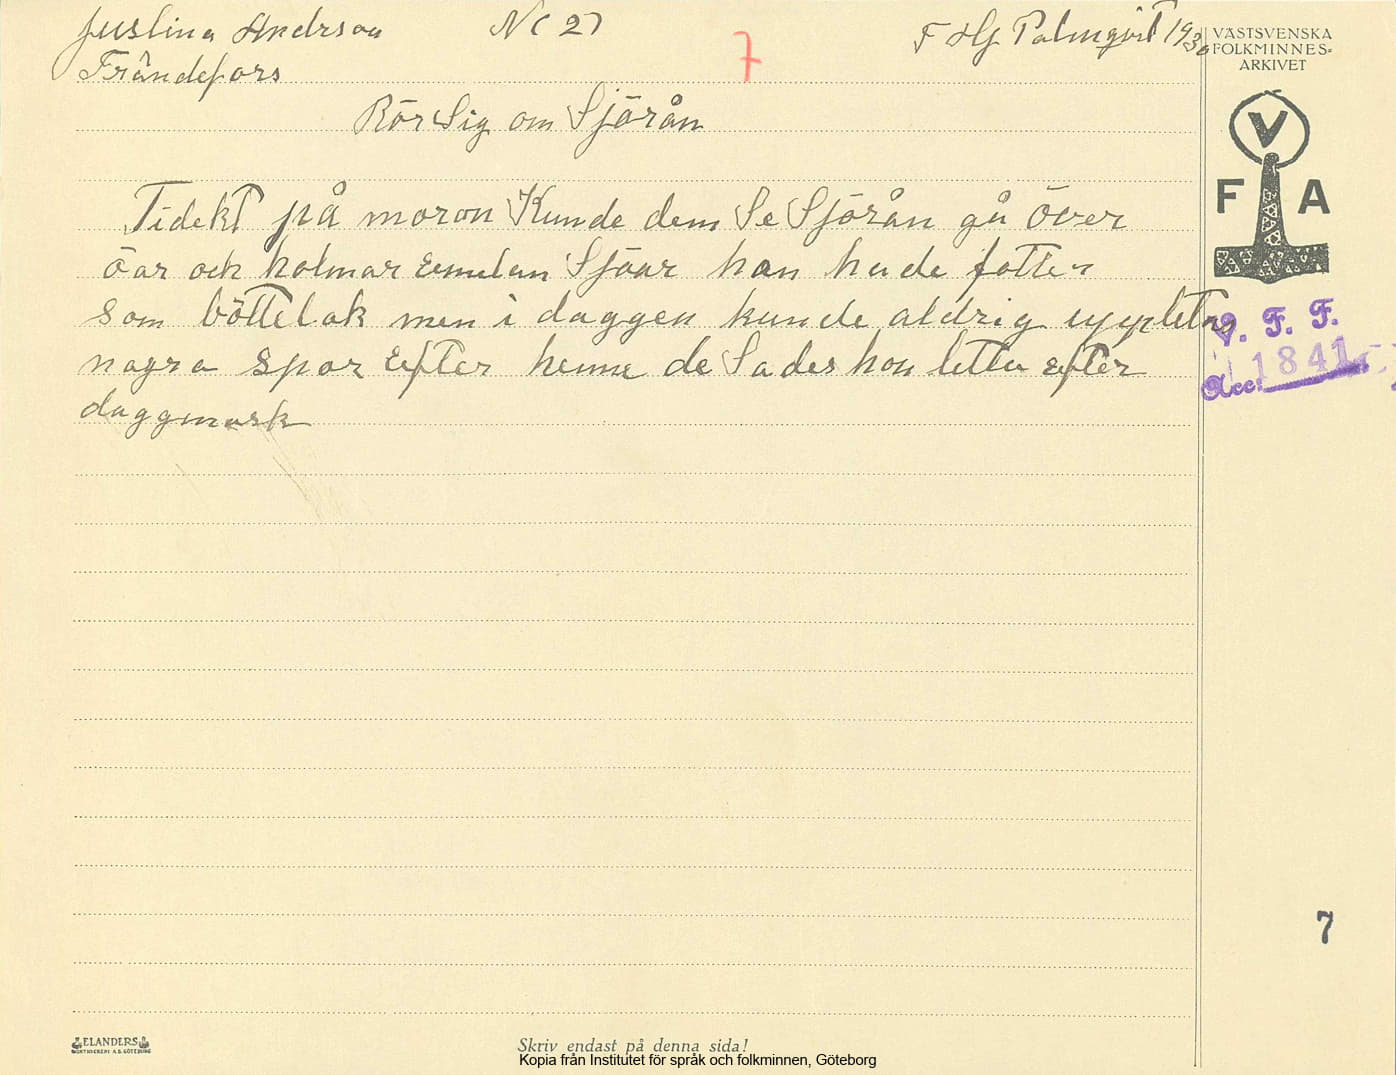 Justina Andrson N( 27 7 F Hg Palmqvist 1930
Frändefors
Rör Sig om Sjörån
Tidekt på moron Kunde dem Se Sjörån gå över
öar och holmar emelan Sjöar han hade fötter
som böttelok men i daggen kunde aldrig upptetas
nagra spor Eefter henne de Sades hon lettu eefter
daggmark
VÄSTSVENSKA
FOLKMINNES-
ARKIVET
V
F A
V. F. F.
Acc: 1841
7
ELANDERS
BOKTRYCKERI A.B. GÖTEBORG
Skriv endast på denna sida!
Kopia från Institutet för språk och folkminnen, Göteborg